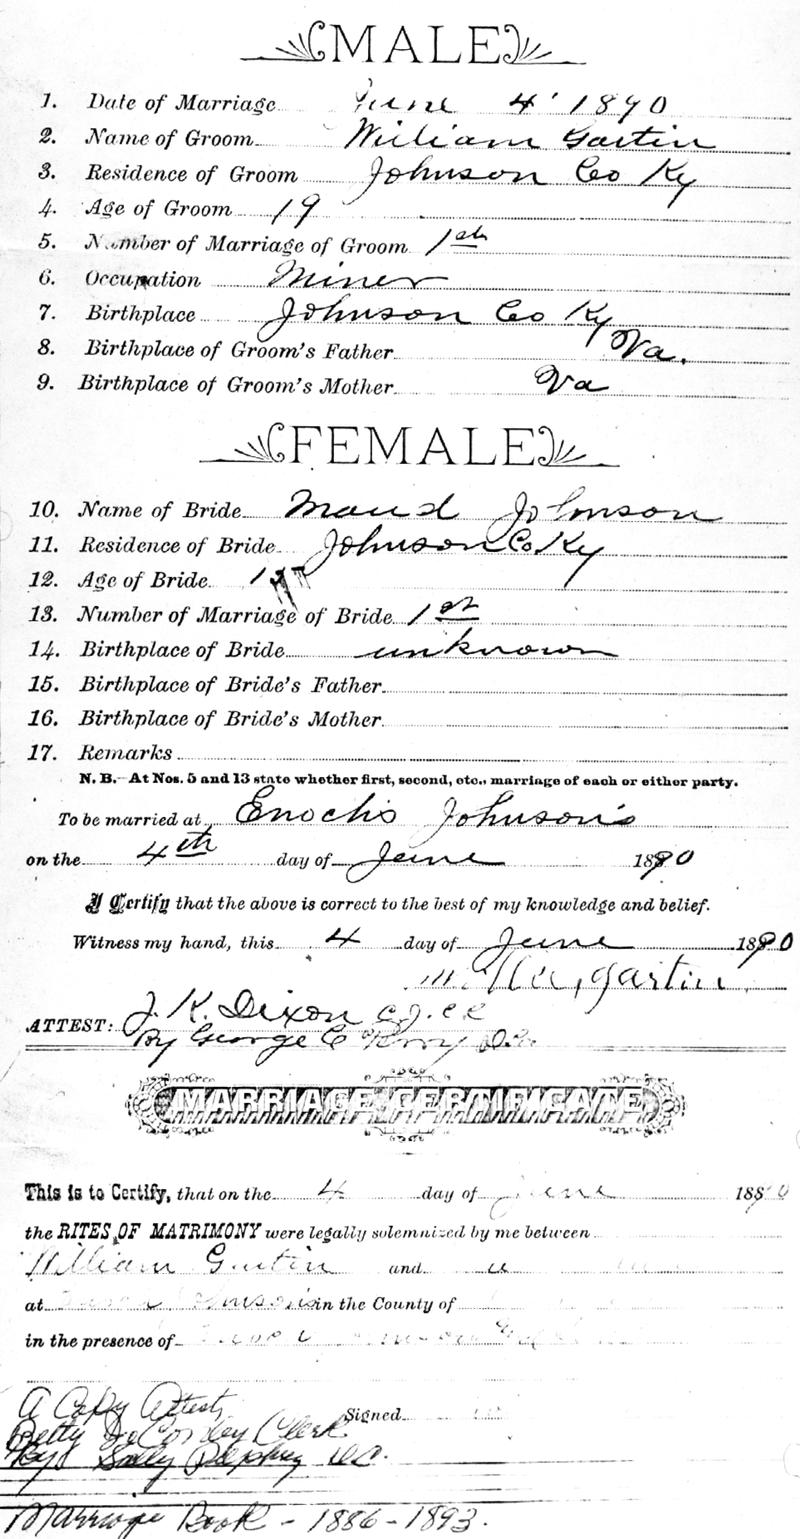 MALE
1. Date of Marriage June 4' 1890
2. Name of Groom William Gartin
3. Residence of Groom Johnson Co Ky
4. Age of Groom 19
5. Number of Marriage of Groom 1st
6. Occupation Miner
7. Birthplace Johnson Co Ky
8. Birthplace of Groom's Father Va.
9. Birthplace of Groom's Mother Va
FEMALE
10. Name of Bride Maud Johnson
11. Residence of Bride Johnson Co Ky
12. Age of Bride
13. Number of Marriage of Bride 1st
14. Birthplace of Bride unknown
15. Birthplace of Bride's Father
16. Birthplace of Bride's Mother
17. Remarks
N. B.—At Nos. 5 and 13 state whether first, second, etc., marriage of each or either party.
To be married at Enochs Johnson's
on the 4th day of June 1890
I Certify that the above is correct to the best of my knowledge and belief.
Witness my hand, this 4 day of June 1890
Gartin
ATTEST: J. K. Dixon
By George C
MARRIAGE CERTIFICATE
This is to Certify, that on the 4 day of June 1890
the RITES OF MATRIMONY were legally solemnized by me between
William Gartin and
at Johnson's in the County of
in the presence of
A Copy Attest,
Signed
Betty Jo Conley Clerk
By Sally DC.
Marriage Book - 1886-1893.